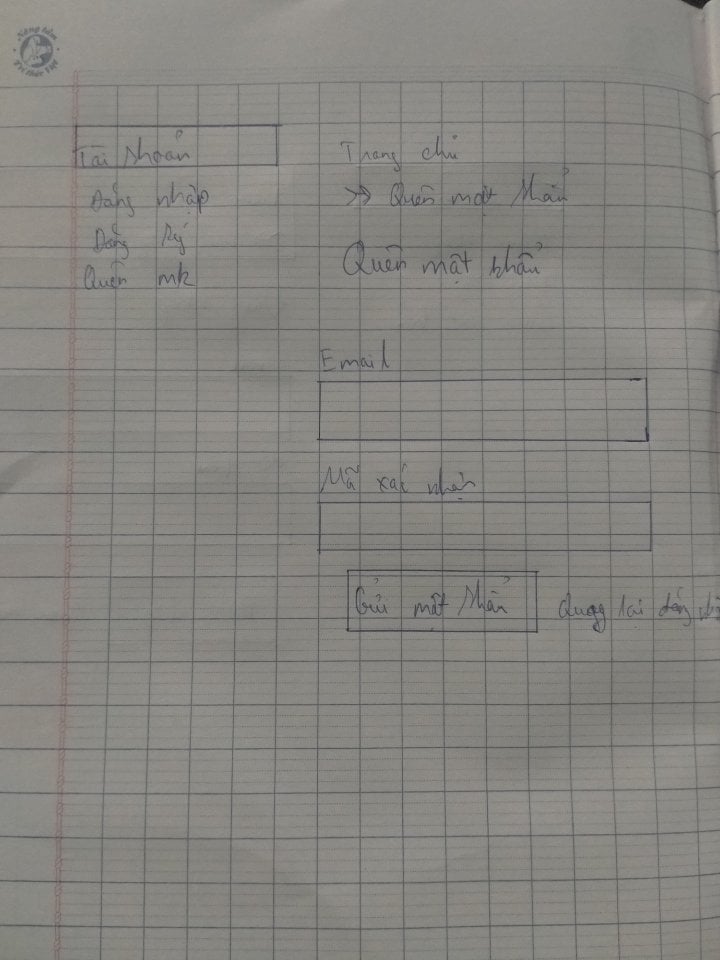 Nâng tầm
Tri thức Việt
Tài khoản
Đăng nhập
Đăng ký
Quên mk
Trang chủ
>> Quên mật khẩu
Quên mật khẩu
Email
Mã xác nhận
Gửi mật khẩu
Quay lại đăng